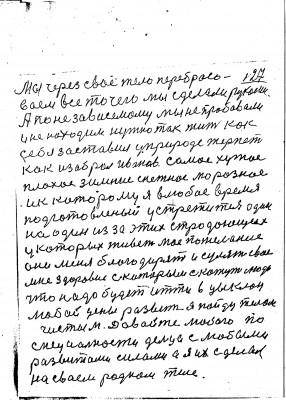 127
Мы через своё тело перебрасо-
ваем все то чего мы сделали руками.
А по независемому мы не пробовали
и не находим нужно так жит как
себя заставил у природе терпет
как избрал иванов самое худшое
плохое зимние снежное морозное
ик каторому я влюбое время
подготовленый устретитея один
на один из за этих страдающех
у каторых живет мае пожелание
они меня благодарят и
мне здоровие скаторым скажут люди
что надо будет итти в
любой цены развит. я пойду телом
чистым. Давайте любого по
специалности делца с любыми
развитами силами а я их сделаю
на сваем родном теле.